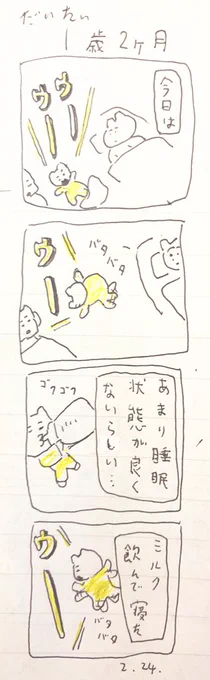 だいたい
1歳2ヶ月
今日は
ウウーー
ウー
バタバタ
あまり睡眠
状態が良く
ないらしい…
ゴクゴク
ミルク
飲んで寝た
ウー
バタバタ
2.24.